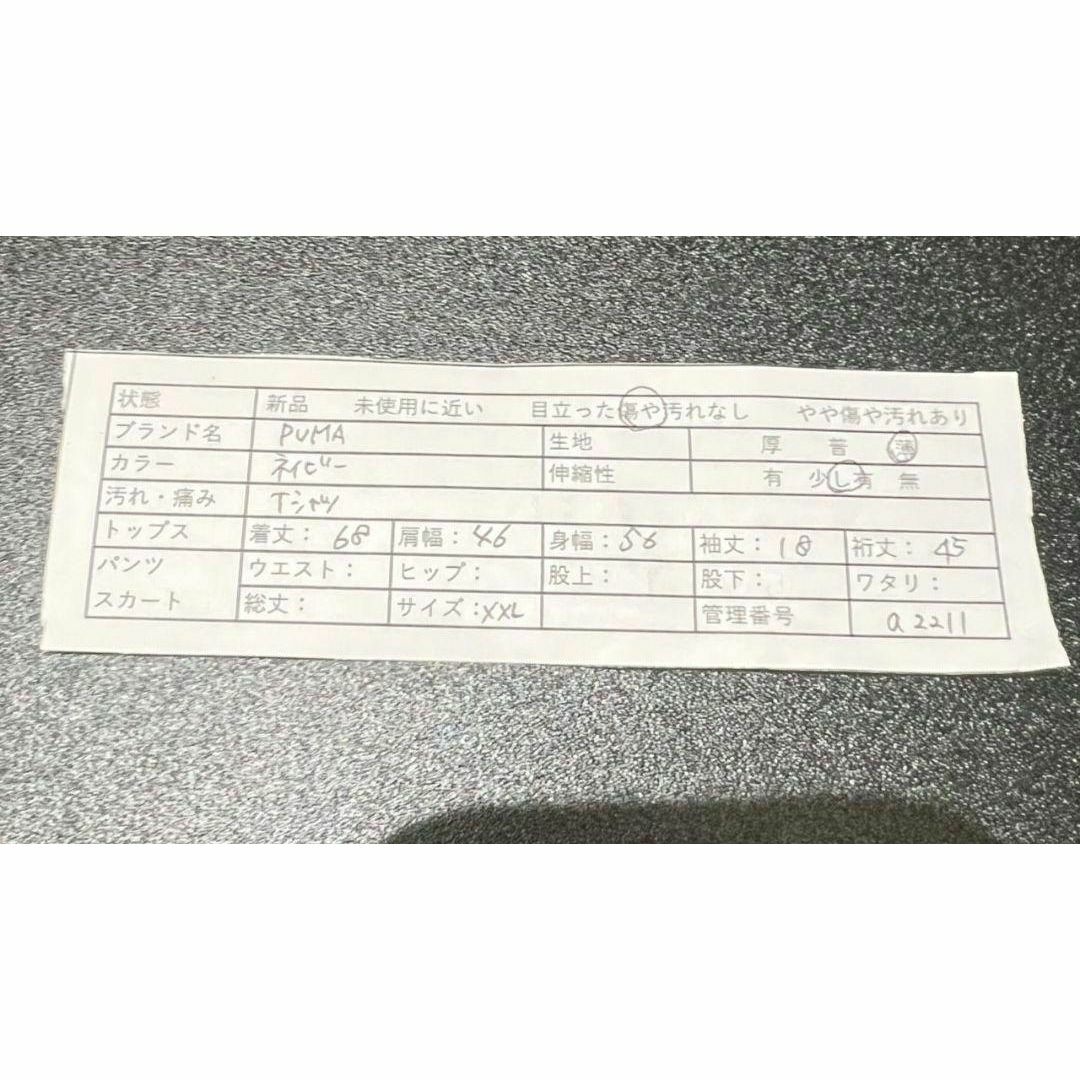 状態 新品 未使用に近い 目立った傷や汚れなし やや傷や汚れあり
ブランド名 PUMA 生地 厚 普 薄
カラー ネイビー 伸縮性 有 少し有 無
汚れ・痛み Tシャツ
トップス 着丈: 68 肩幅: 46 身幅: 56 袖丈: 18 裄丈: 45
パンツ ウエスト: ヒップ: 股上: 股下: ワタリ:
スカート 総丈: サイズ:XXL 管理番号 a2211